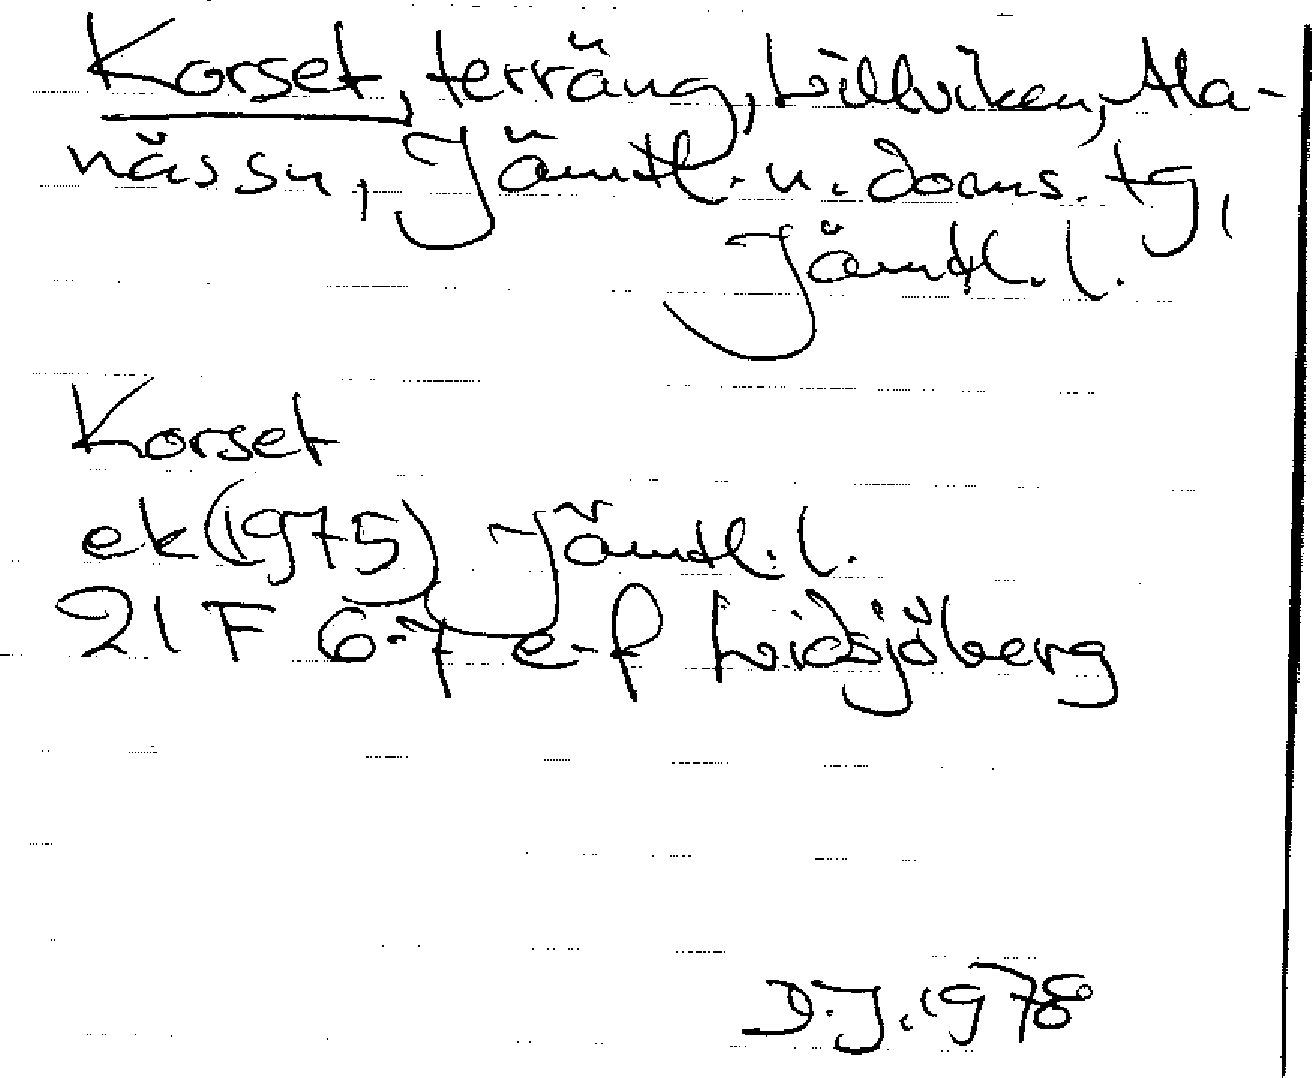 Korset, terräng, Lillviken, Ala-
näs sn, Jämtl. n. doms. tg,
Jämtl. l.
Korset
ek (1975) Jämtl. l.
21 F 6-7 e-f Lidsjöberg
D.J. 1978